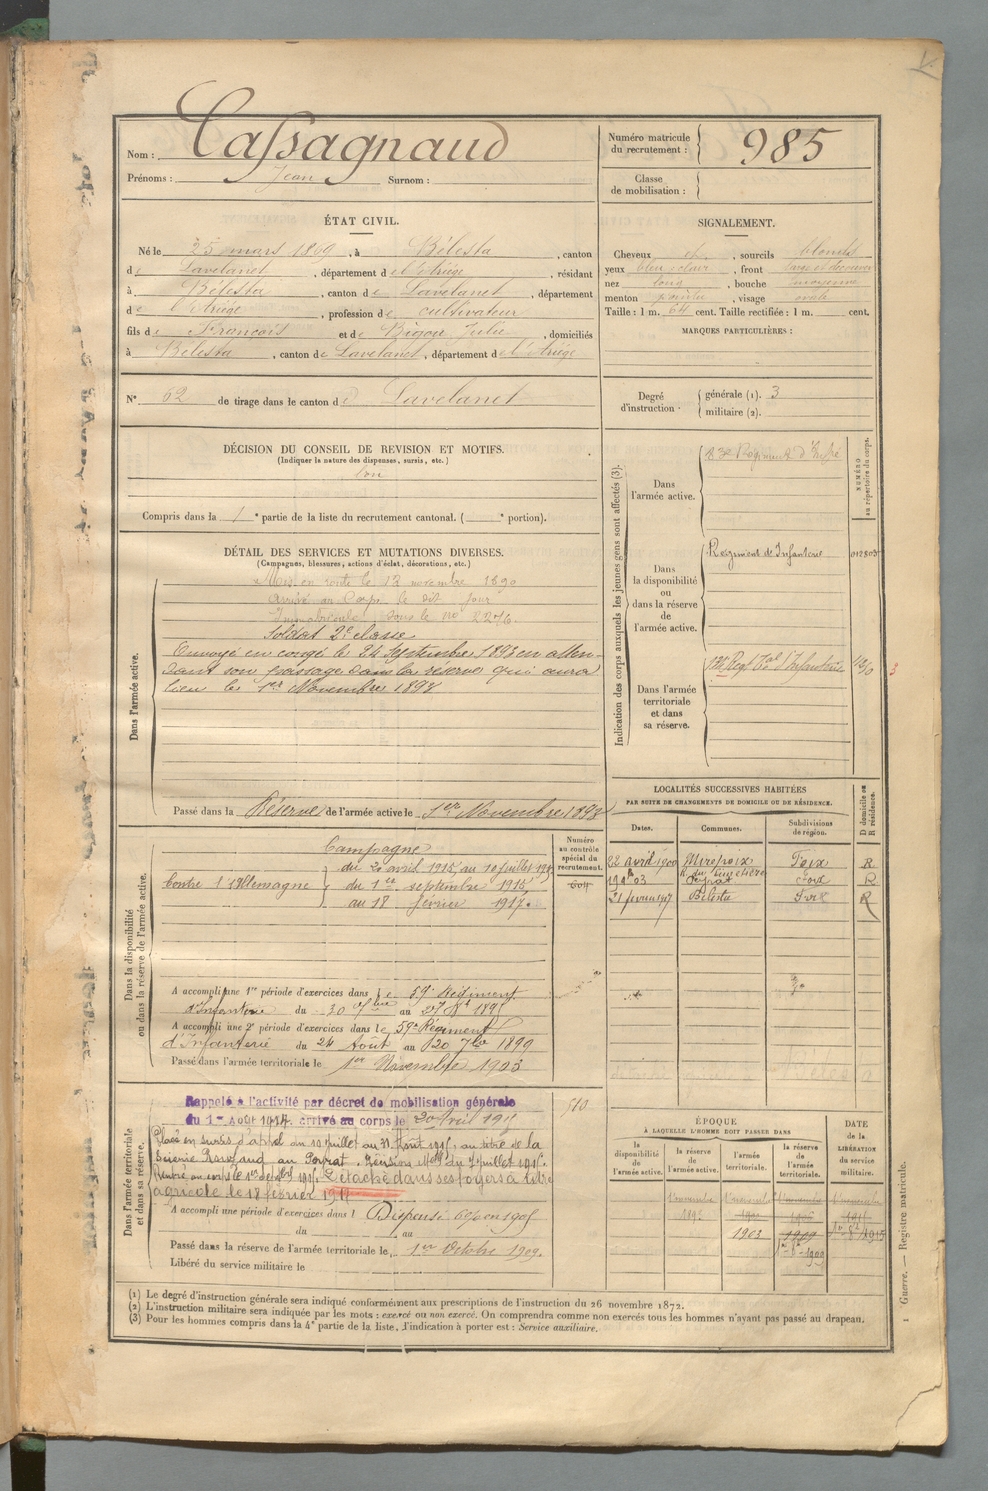 Nom : Cassagnaud
Prénoms : Jean Surnom :
Numéro matricule
du recrutement : 985
Classe
de mobilisation :
ÉTAT CIVIL.
Né le 25 mars 1869, à Bélesta, canton
de Lavelanet, département de l'Ariége, résidant
à Bélesta, canton de Lavelanet, département
de l'Ariége, profession de cultivateur
fils de François et de Bigou Julie, domiciliés
à Bélesta, canton de Lavelanet, département de l'Ariége
N° 62 de tirage dans le canton de Lavelanet
SIGNALEMENT.
Cheveux et, sourcils blonds
yeux bleu clair, front large et découvert
nez long, bouche moyenne
menton pointu, visage ovale
Taille : 1 m. 64 cent. Taille rectifiée : 1 m. cent.
MARQUES PARTICULIÈRES :
Degré
d'instruction. générale (1). 3
militaire (2).
DÉCISION DU CONSEIL DE REVISION ET MOTIFS.
(Indiquer la nature des dispenses, sursis, etc.)
bon
Compris dans la 1e partie de la liste du recrutement cantonal. ( e portion).
DÉTAIL DES SERVICES ET MUTATIONS DIVERSES.
(Campagnes, blessures, actions d'éclat, décorations, etc.)
Dans l'armée active.
Mis en route le 13 novembre 1890
arrivé au Corps le dit jour
Immatriculé sous le no 2276.
Soldat 2e classe
Envoyé en congé le 24 Septembre 1893 en atten-
dant son passage dans la réserve qui aura
lieu le 1er Novembre 1893
Passé dans la Réserve de l'armée active le 1er Novembre 1893
Indication des corps auxquels les jeunes gens sont affectés (3).
NUMÉRO
au répertoire du corps.
Dans
l'armée active.
Régiment d'Infie
Dans
la disponibilité
ou
dans la réserve
de
l'armée active.
Régiment de Infanterie
Dans l'armée
territoriale
et dans
sa réserve.
Regt Tal d'Infanterie
3
LOCALITÉS SUCCESSIVES HABITÉES
PAR SUITE DE CHANGEMENTS DE DOMICILE OU DE RÉSIDENCE.
D domicile ou
R résidence.
Dates. Communes. Subdivisions
de région.
22 avril 1900 Mirepoix Foix R
Foix R
21 février 1917 Bélesta Foix R
Dans la disponibilité
ou dans la réserve de l'armée active.
Numéro
au contrôle
spécial du
recrutement.
604
Campagne
Contre l'Allemagne du 20 avril 1915 au 10 juillet 1915
du 1er septembre 1915
au 18 février 1917.
A accompli une 1re période d'exercices dans le 59e Régiment
d'Infanterie du 30 7bre au 27 8bre 1895
A accompli une 2e période d'exercices dans le 59e Régiment
d'Infanterie du 24 Août au 20 7bre 1899
Passé dans l'armée territoriale le 1er Novembre 1903
Dans l'armée territoriale
et dans sa réserve.
Rappelé à l'activité par décret de mobilisation générale
du 1er août 1914, arrivé au corps le 20 Avril 1915
Placé en sursis d'appel du 10 juillet au 31 Août 1915 au titre de la
Scierie au Peyrat. Décision du 7 juillet 1915.
Rentré au corps le 1er 1915. Détaché dans ses foyers à titre
agricole le 18 février 1917
A accompli une période d'exercices dans l Dispensé en 1905
du au
Passé dans la réserve de l'armée territoriale le 1er Octobre 1909.
Libéré du service militaire le
ÉPOQUE
À LAQUELLE L'HOMME DOIT PASSER DANS
la
disponibilité
de
l'armée active. la réserve
de
l'armée active. l'armée
territoriale. la réserve
de
l'armée
territoriale. DATE
de la
LIBÉRATION
du service
militaire.
1 novembre 1 novembre 1 novembre 1 novembre
1893
1903 1909
1er 8bre 1909
(1) Le degré d'instruction générale sera indiqué conformément aux prescriptions de l'instruction du 26 novembre 1872.
(2) L'instruction militaire sera indiquée par les mots : exercé ou non exercé. On comprendra comme non exercés tous les hommes n'ayant pas passé au drapeau.
(3) Pour les hommes compris dans la 4e partie de la liste, l'indication à porter est : Service auxiliaire.
1 Guerre. — Registre matricule.